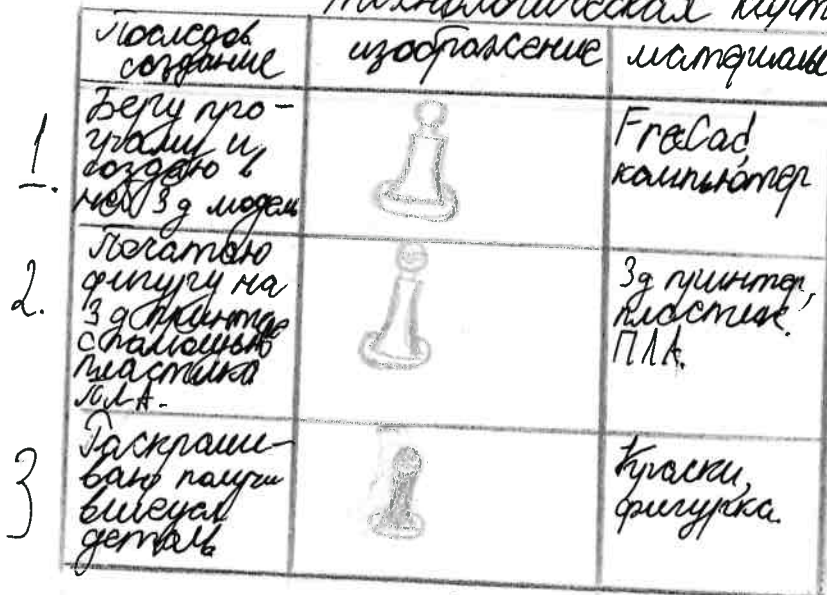 технологическая карт
Последов
создание
изображение
материалы
1.
Беру про-
грамму и
создаю в
ней 3д модель
FreeCad,
компьютер
2.
Печатаю
фигуру на
3д принтере
с помощью
пластика
ПЛА.
3д принтер,
пластик.
ПЛА.
3
Раскраши-
ваю получи
вшеуся
деталь
Краски,
фигурка.